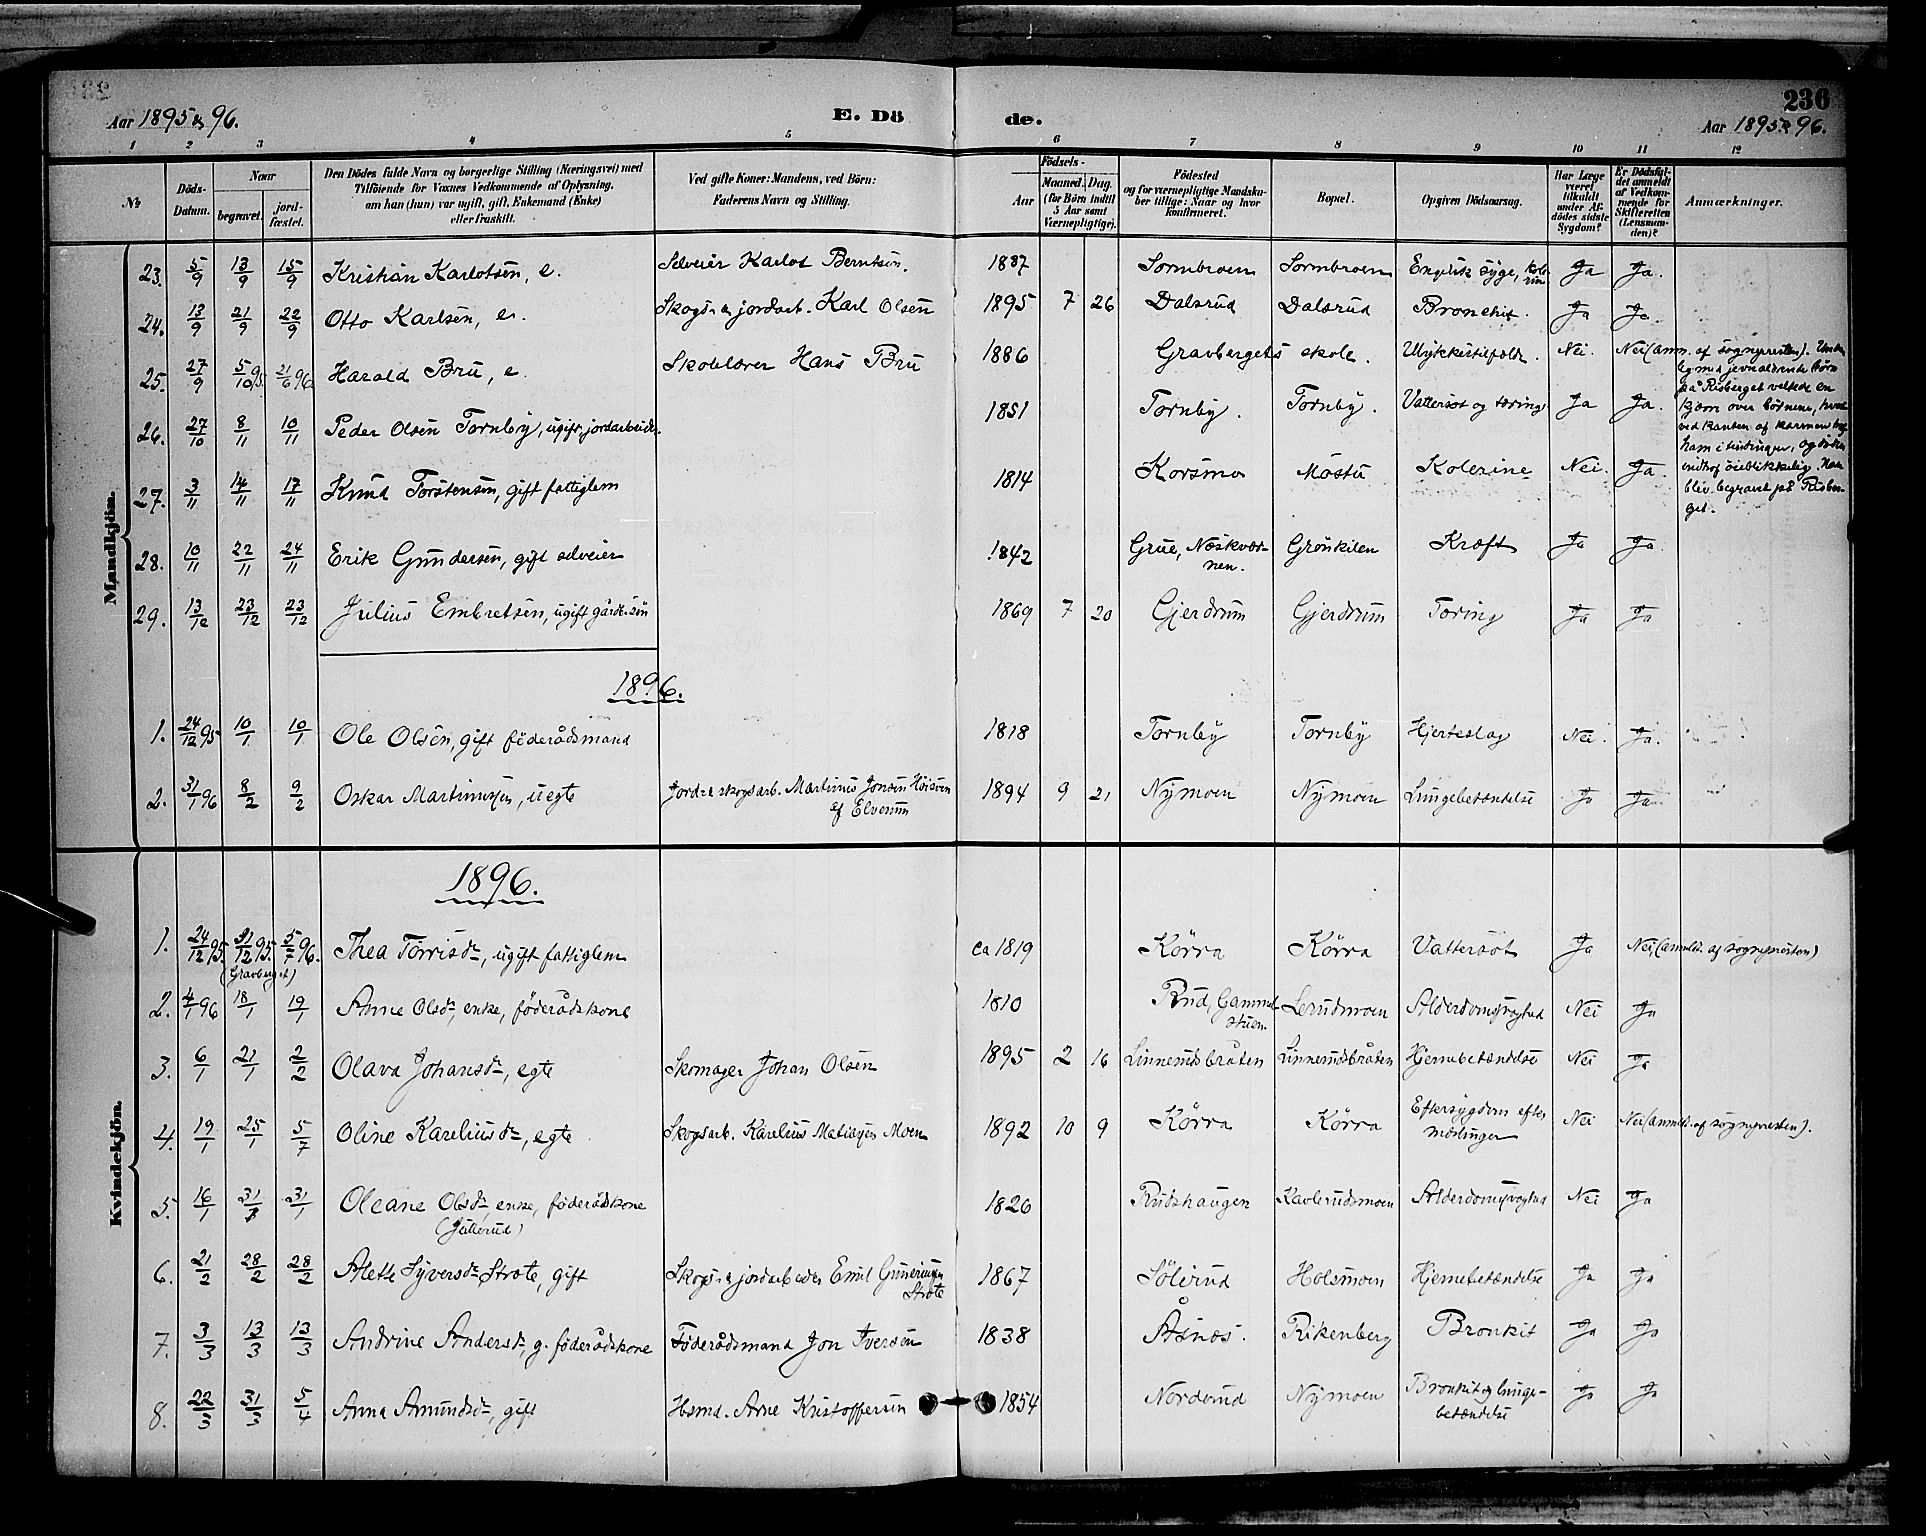 236
Aar 1895 & 96.
E. Dö
de.
Aar 1895 & 96.
1 2 3 4 5 6 7 8 9 10 11 12
№
Döds-Datum.
Naar
begravet.
jord-fæstet.
Den Dödes fulde Navn og borgerlige Stilling (Næringsvei) med
Tilföiende for Voxnes Vedkommende af Oplysning,
om han (hun) var ugift, gift, Enkemand (Enke)
eller fraskilt.
Ved gifte Koner: Mandens, ved Börn:
Faderens Navn og Stilling.
Födsels-
Aar
Maaned. Dag.
(for Börn indtil
5 Aar samt
Værnepligtige).
Födested
og for værnepligtige Mandska-
ber tillige: Naar og hvor
konfirmeret.
Bopæl.
Opgiven Dödsaarsag.
Har Læge
været
tilkaldt
under Af-
dödes sidste
Sygdom?
Er Dödsfal-
det anmeldt
af Vedkom-
mende for
Skifteretten
(Lensman-
den)?
Anmærkninger.
Mandkjön.
23. 5/9 13/9 15/9 Kristian Karlotsen, e. Selveier Karlot Berntsen. 1887 Sormbroen Sormbroen Engelsk syge, Ja Ja.
24. 13/9 21/9 22/9 Otto Karlsen, e. Skogs- & jordarb. Karl Olsen 1895 7 26 Dalsrud Dalsrud Bronchit. Ja Ja.
25. 27/9 5/10 95 21/6 96 Harald Bru, e. Skolelærer Hans Bru 1886 Gravbergets skole. Ulykkestilfælde. Nei. Nei (anm. af sognepresten). Under
leg med jevnaldrende börn
på Risberget veltede en
26. 27/10 8/11 10/11 Peder Olsen Tornby, ugift jordarbeider. 1851 Tornby. Tornby. Vattersot og tæring. Ja Ja.
over börnene,
ved kanten af karmen
ham i tindingen, og döden
indtraf öieblikkelig. Han
blev begravet på Risber-
get.
27. 3/11 14/11 17/11 Knud Torstensen, gift fattiglem 1814 Korsmo Möstu Kolerine Nei. Ja.
28. 10/11 22/11 24/11 Erik Gundersen, gift selveier 1842 Grue, Næskvær-
nen. Grönkilen Kræft Ja Ja.
29. 13/12 23/12 23/12 Julius Embretsen, ugift gårdbr.sön 1869 7 20 Gjerdrum Gjerdrum Tæring Ja Ja
1896.
1. 24/12 95 10/1 10/1 Ole Olsen, gift föderådsmand 1818 Tornby Tornby Hjerteslag Nei. Ja.
2. 31/1 96 8/2 9/2 Oskar Martinusen, uegte Jord- & skogsarb. Martinus Jonsen Höisven
af Elverum 1894 9 21 Nymoen Nymoen Lungebetændelse Ja Ja
Kvindekjön.
1896.
1. 24/12 95. 31/12 95. 5/7 96. Thea Torrisdr, ugift fattiglem ca 1819 Körra Körra Vattersot Ja Nei, (anmeldt. af sognepresten)
(Gravberget)
2. 4/1 96 18/1 19/1 Anne Olsdr, enke, föderådskone 1810 Rud, Gammel-
stuen Lerudmoen Alderdomssvaghed Nei Ja
3. 6/1 21/1 2/2 Olava Johansdr, egte Skomager Johan Olsen 1895 2 16 Linnerudsbråten Linnerudsbråten Hjernebetændelse Nei Ja
4. 19/1 25/1 5/7 Oline Kareliusdr, egte Skogsarb. Karelius Matiasen Moen 1892 10 9 Körra Körra Eftersygdom efter
meslinger Nei Nei (anmeldt. af sognepresten).
5. 16/1 31/1 31/1 Oleane Olsdr, enke, föderådskone
(Jutterud) 1826 Rudshaugen Kavlerudsmoen Alderdomssvaghed Nei Ja
6. 21/2 28/2 28/2 Alette Syversdr Strote, gift Skogs- & jordarbeider Emil Guneriusen
Strote 1867 Sölerud Holsmoen Hjernebetændelse Ja Ja
7. 3/3 13/3 13/3 Andrine Andersdr, g. föderådskone Föderådsmand Jon Iversen 1838 Åsnes. Rikenberg Bronkit Ja Ja
8. 22/3 31/3 5/4 Anna Amundsdr, gift Hsmd. Arne Kristoffersen 1854 Norderud Nymoen Bronkit og lunge-
betændelse Ja Ja